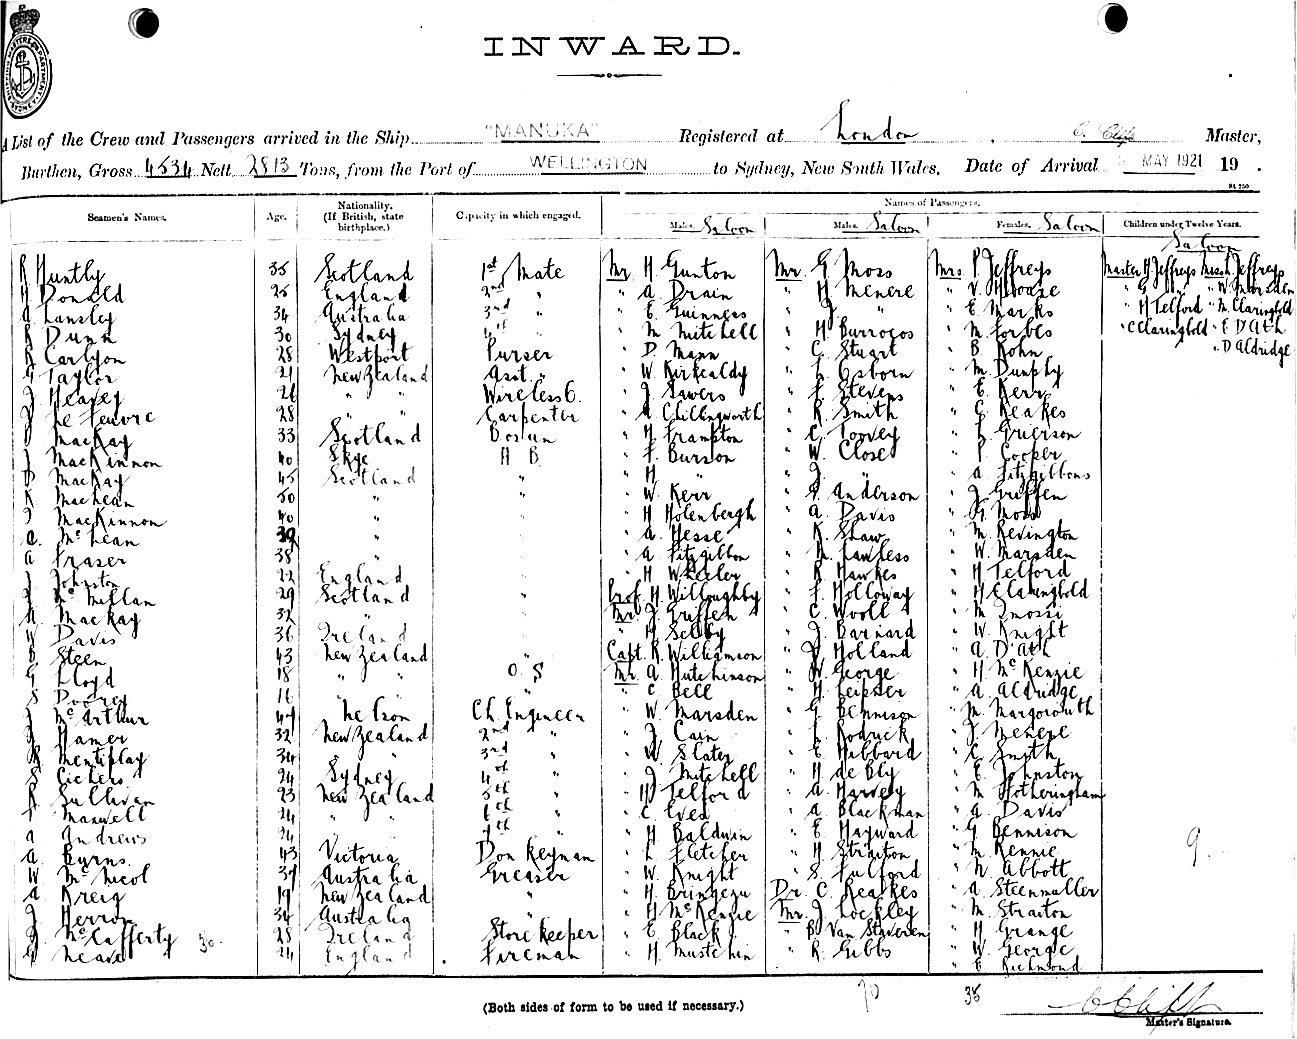 INWARD.
A List of the Crew and Passengers arrived in the Ship "MANUKA" Registered at London, Master,
Burthen, Gross 4534 Nett 2813 Tons, from the Port of WELLINGTON to Sydney, New South Wales. Date of Arrival MAY 1921 19 .
Seamen's Names. Age. Nationality. (If British, state birthplace.) Capacity in which engaged. Names of Passengers.
Males. Saloon Males. Saloon Females. Saloon Children under Twelve Years.
Saloon
R Huntly 35 Scotland 1st Mate Mr H Gunton Mr G Moss Mrs P Jeffreys Master H Jeffreys Miss L Jeffreys
H Donald 25 England 2nd " " A Drain " H Menere " V Moore " G " " W Marsden
A Lansley 34 Australia 3rd " " E Guinness " J " " E Marks " H Telford " M Claringbold
R Dunn 30 Sydney 4th " " M Mitchell " H Burrows " M Forbes " C Claringbold " E D'Ath
R Carlyon 28 Westport Purser " D Mann " C Stuart " B Kohn " D Aldridge
G Taylor 21 New Zealand Asst. " " W Kirkcaldy " L Osborn " M Dunphy
J Heavey 26 " " Wireless O. " J Sawers " F Stevens " E Kerr
J Le Feuvre 28 " " Carpenter " A Chillingworth " R Smith " C Keakes
D MacKay 33 Scotland Bosun " H Frampton " C Toovey " L Grierson
J MacKinnon 40 Skye A B " F Burson " W Close " P Cooper
D MacKay 45 Scotland " " H " " J " " A Fitzgibbons
K MacLean 50 " " " W Kerr " G Anderson " J Griffen
J MacKinnon 40 " " " H Holenbergh " A Davis " G Moss
A McLean 39 " " " A Hesse " K Shaw " M Revington
A Fraser 38 " " " A Fitzgibbon " M Lawless " W Marsden
J Johnston 22 England " " H Wheeler " R Hawkes " H Telford
J McMillan 29 Scotland " Prof. H Willoughby " F Holloway " H Claringbold
M MacKay 32 " " Mr J Griffen " C Wooll " M Imossi
W Davis 36 Ireland " " H Selby " J Barnard " W Knight
B Steen 43 New Zealand " Capt. R Williamson " V Holland " A D'Ath
G Lloyd 18 " " O S Mr A Hutchinson " W George " H McKenzie
S Dooney 16 " " " " C Bell " H Leipser " A Aldridge
J McArthur 47 Nelson Ch Engineer " W Marsden " G Bennison " M Margoworth
J Hamer 32 New Zealand 2nd " " J Cain " L Rodrick " J Menere
R Mentiplay 34 " " 3rd " " W Slater " E Hibbard " C Smith
S Cichero 24 Sydney 4th " " J Mitchell " H de Bly " E Johnston
R Sullivan 23 New Zealand 5th " " H Telford " A Harvey " M Fotheringham
F Maxwell 24 " " 6th " " C Eves " A Blackman " A Davis
A Andrews 24 7th " " H Baldwin " E Hayward " G Bennison
A Burns. 43 Victoria Donkeyman " L Fletcher " H Straiton " M Rennie 9.
W McNicol 37 Australia Greaser " W Knight " S Fulford " N Abbott
A Kreig 19 New Zealand " " H Bringezu Dr. C Keakes " A Steenmuller
J Herron 34 Australia " " H McKenzie Mr. J Lockley " M Straiton
J McCafferty 30. 28 Ireland Storekeeper " E Black " B Van Staveren " H Grange
G Neave 24 England Fireman " H Mustchin " R Gibbs " W George
" E Richmond
70 38
(Both sides of form to be used if necessary.)
Master's Signature.